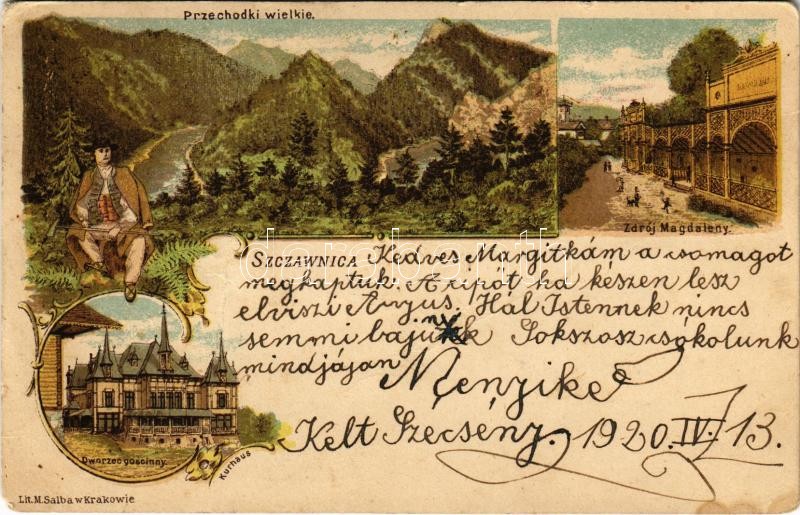 Przechodki wielkie.
Zdrój Magdaleny.
SZCZAWNICA Kedves Margitkám a csomagot
megkaptuk. A cipőt ha készen lesz
elviszi Anyus. Hál Istennek nincs
semmi bajunk Sokszosz csókolunk
mindjájan
Menyike
Kelt Szécsény. 1920. IV. 13.
Dworzec gościnny.
Kurhaus
Lit. M. Salba w Krakowie
darabanth